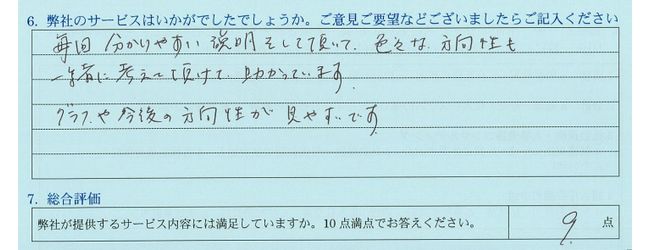 6. 弊社のサービスはいかがでしたでしょうか。ご意見ご要望などございましたらご記入ください
毎回 分かりやすい 説明をして頂いて、色々な 方向性も
一緒に 考えて頂けて 助かっています。
グラフや今後の方向性が 見やすいです
7. 総合評価
弊社が提供するサービス内容には満足していますか。10 点満点でお答えください。 9 点